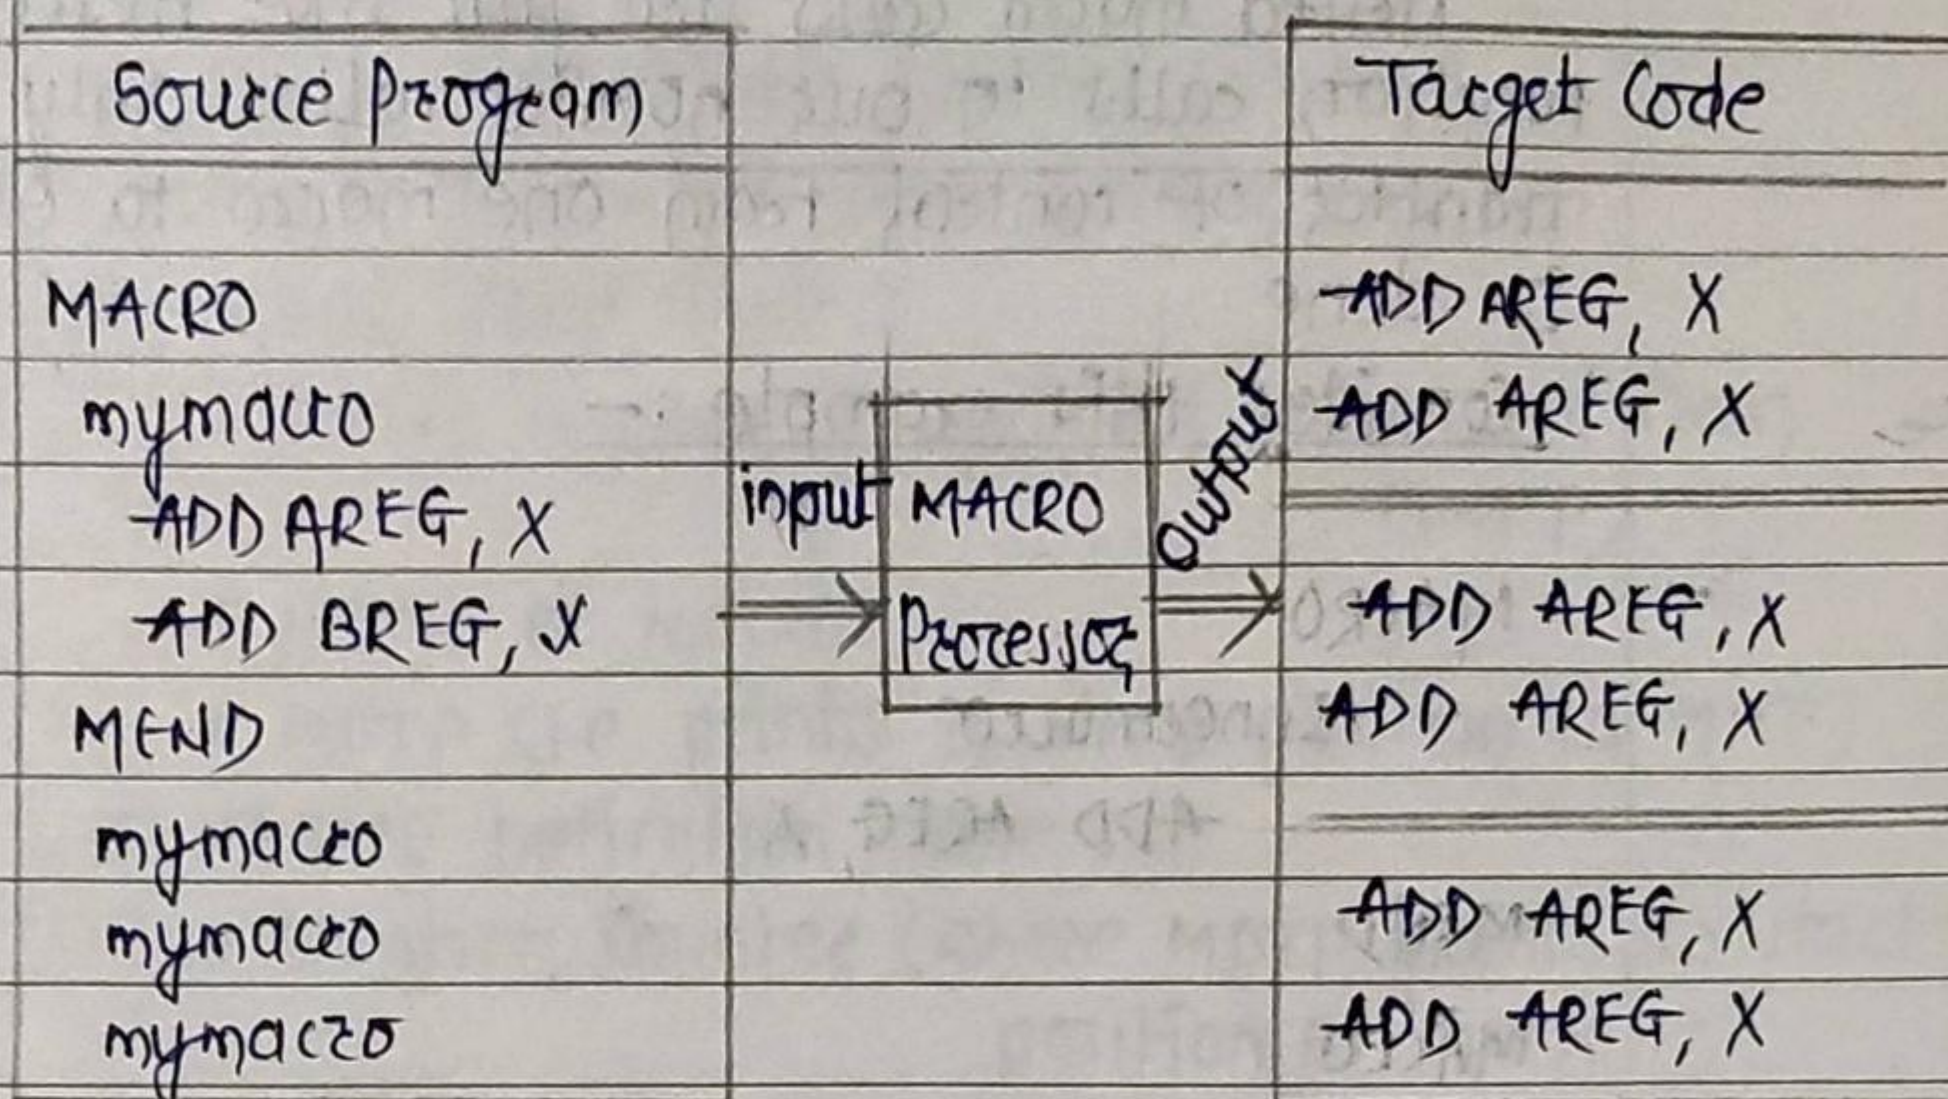 Source Program
MACRO
mymacro
ADD AREG, X
ADD BREG, X
MEND
mymacro
mymacro
mymacro
input
MACRO
Processor
Output
Target Code
ADD AREG, X
ADD AREG, X
ADD AREG, X
ADD AREG, X
ADD AREG, X
ADD AREG, X